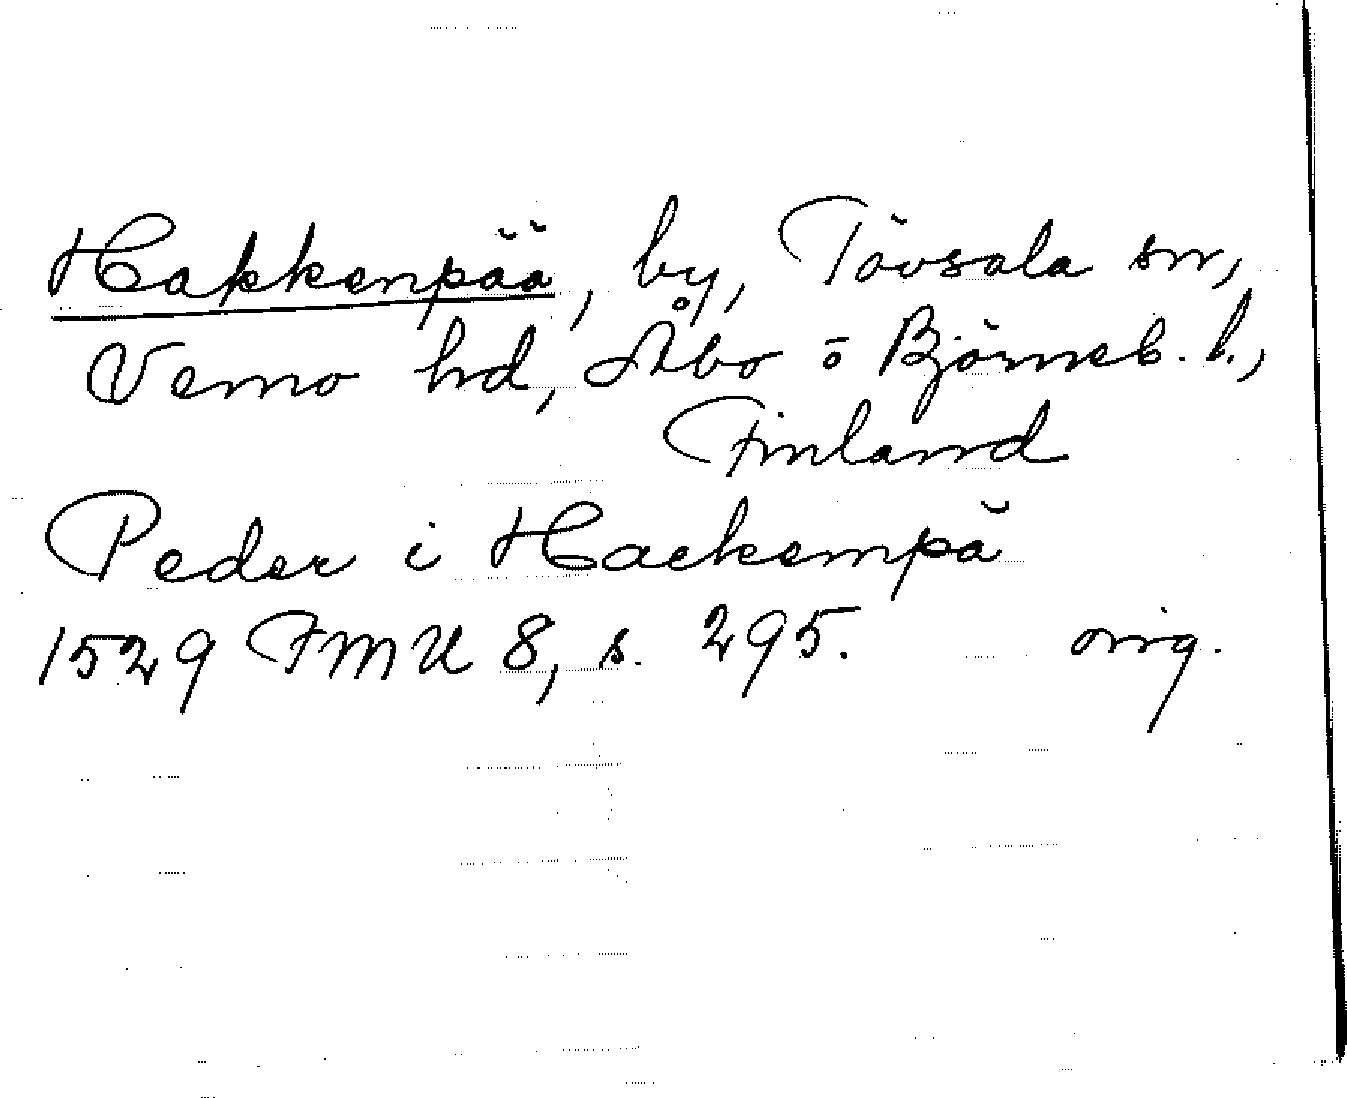 Hakkenpää, by, Tövsala sn,
Vemo hd, Åbo o Björneb. l.,
Finland
Peder i Hackempä
1529 FMU 8, s. 295. orig.